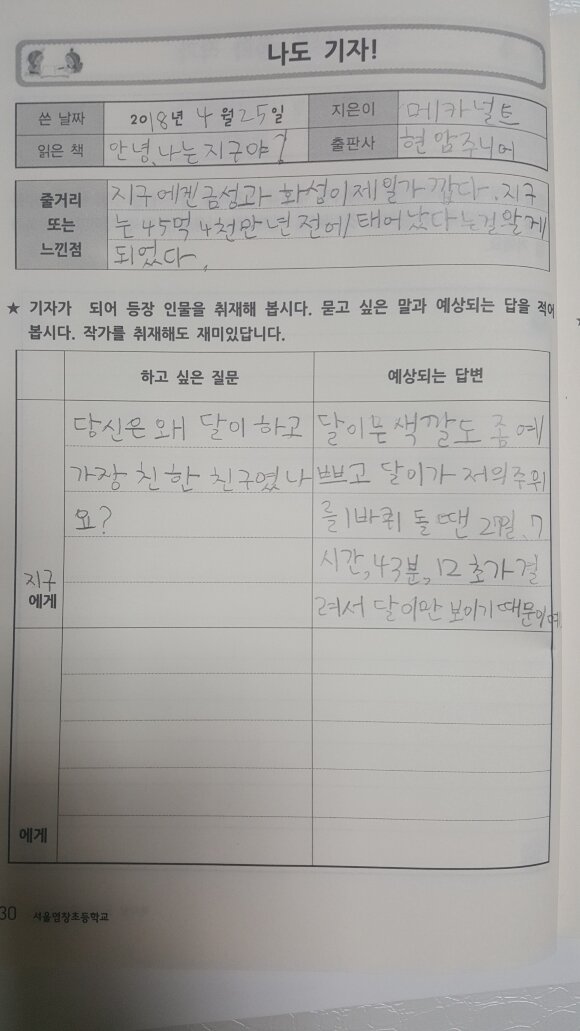 나도 기자!
쓴 날짜 2018년 4월 25일 지은이 메카널트
읽은 책 안녕, 나는 지구야? 출판사 현암주니어
줄거리 또는 느낀점
지구에겐 금성과 화성이 제일 가깝다. 지구
는 45억 4천만 년 전에 태어났다는걸 알게
되었다.
★ 기자가 되어 등장 인물을 취재해 봅시다. 묻고 싶은 말과 예상되는 답을 적어
봅시다. 작가를 취재해도 재미있답니다.
하고 싶은 질문 예상되는 답변
지구에게
당신은 왜 달이 하고
가장 친한 친구였나
요?
달이는 색깔도 좀 예
쁘고 달이가 저의 주위
를 1바퀴 돌 땐 27일, 7
시간, 43분, 12초가 걸
려서 달이만 보이기 때문이예
에게
30 서울명창초등학교